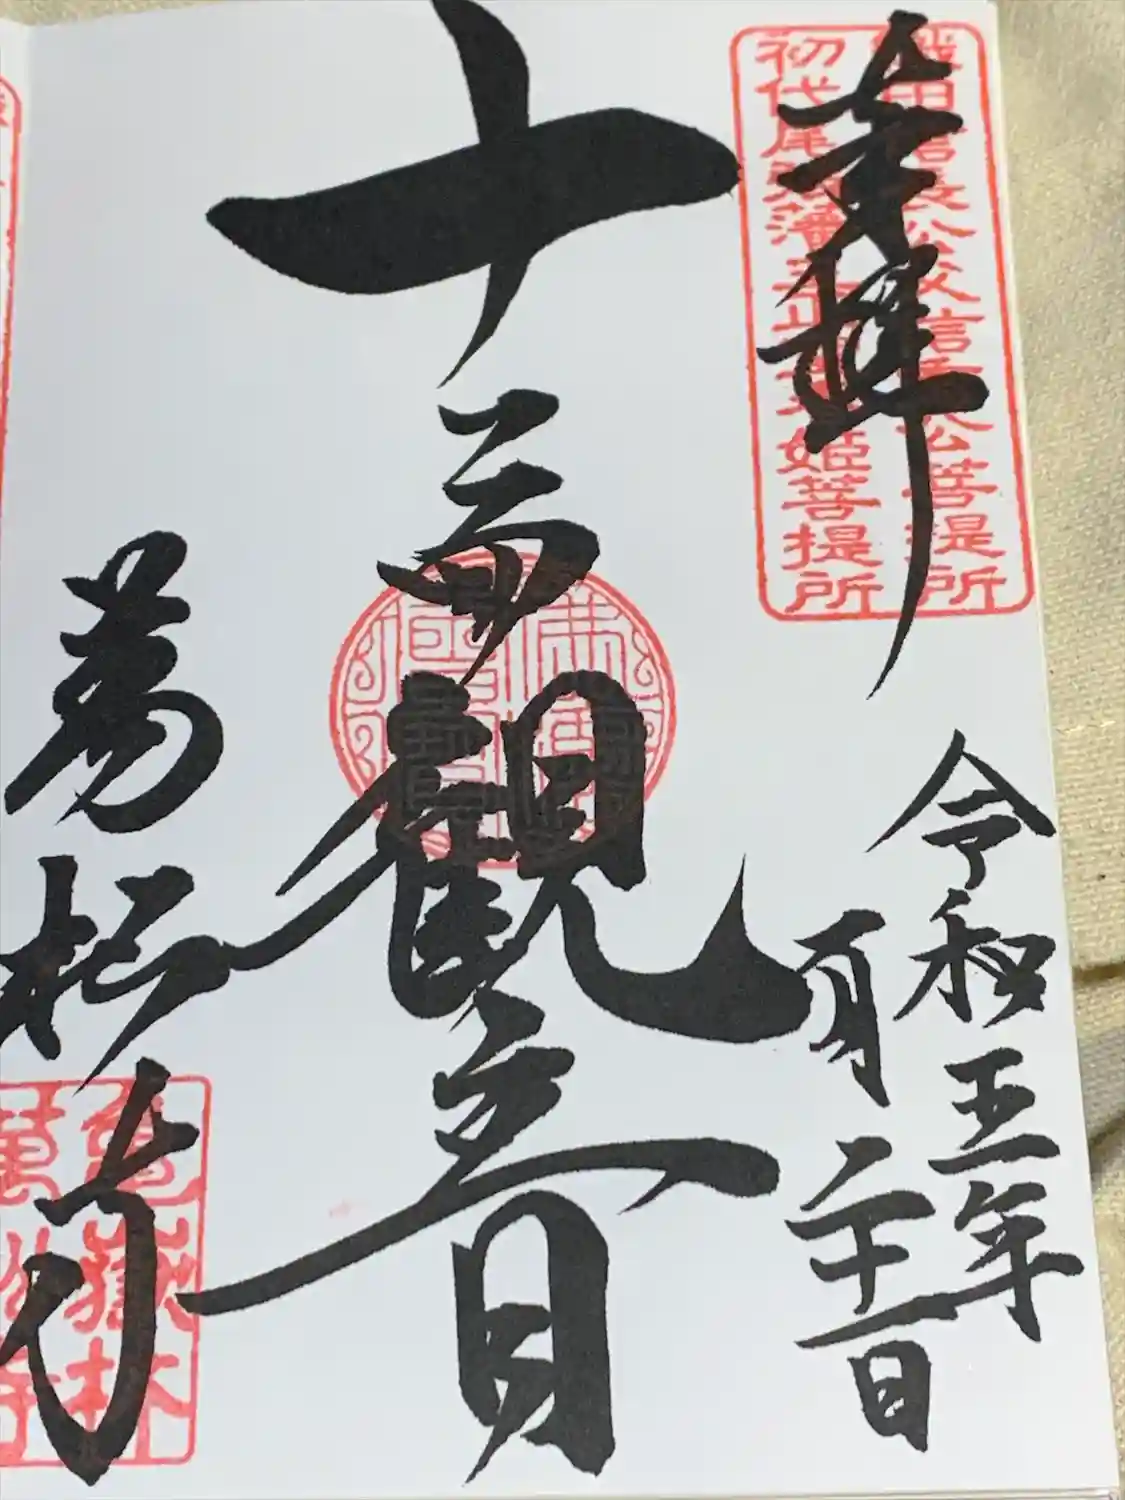 奉拝
織田信長公父信秀公菩提所
初代尾張藩主正室春姫菩提所
令和五年
一月二十一日
十一面観音
萬松寺
亀嶽林
萬松寺